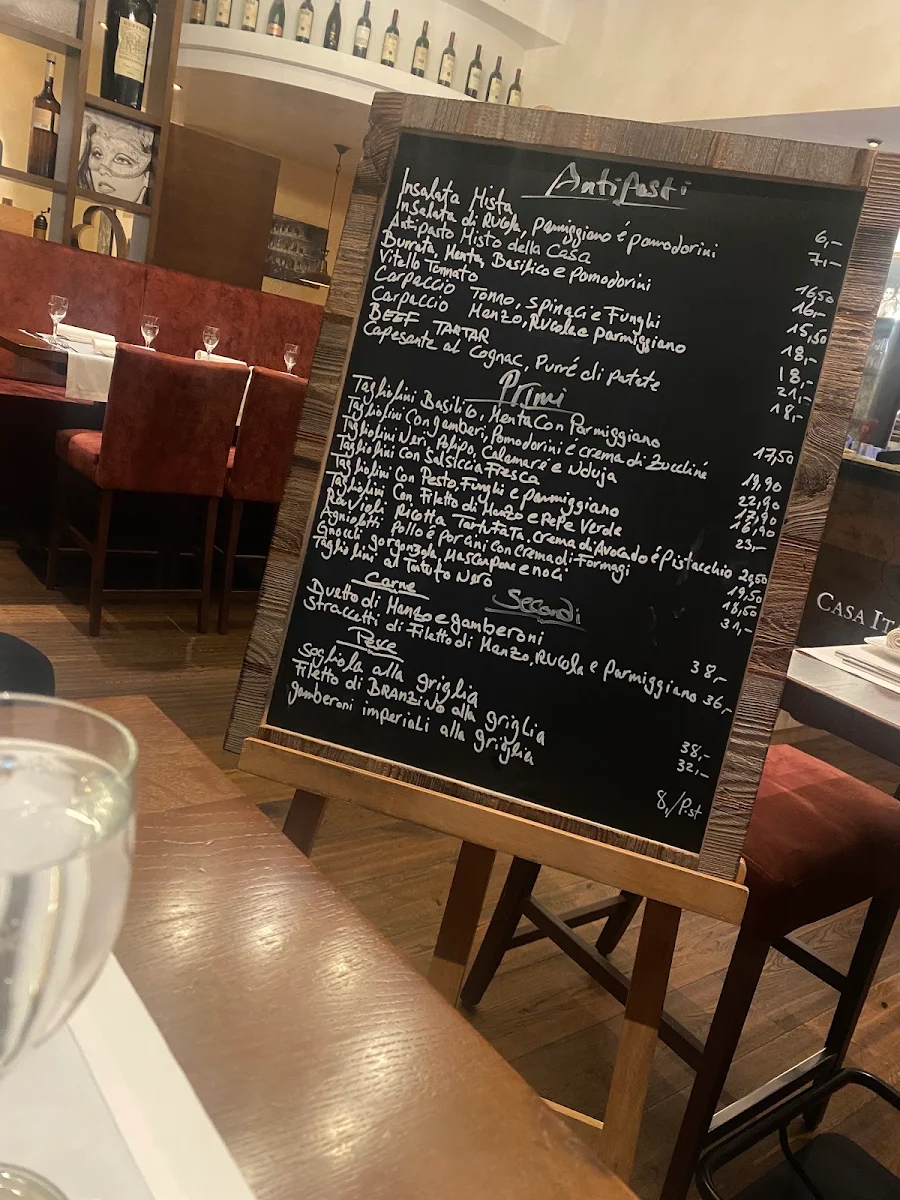 Antipasti
Insalata Mista 6,-
Insalata di Rucola, parmiggiano é pomodorini 7,-
Antipasto Misto della Casa 16,50
Burrata, Menta, Basilico e Pomodorini 16,-
Vitello Tonnato 15,50
Carpaccio Tonno, Spinaci e Funghi 18,-
Carpaccio Manzo, Rucola e parmiggiano 18,-
BEEF TARTAR 21,-
Capesante al Cognac, Purré di patate 18,-
Primi
Tagliolini Basilico, Menta Con Parmiggiano 17,50
Tagliolini Con gamberi, Pomodorini é crema di Zucchine 19,90
Tagliolini Nero, Polipo, Calamare e Nduja 22,90
Tagliolini con Salsiccia Fresca 17,90
Tagliolini Con Pesto, Funghi e parmiggiano 16,90
Tagliolini Con Filetto di Manzo e Pepe Verde 23,-
Ravioli Ricotta Tartufata, crema di Avocado é Pistacchio 20,50
Agnolotti Pollo é porcini con Crema di Formagi 19,50
Gnocchi gorgonzola Mascarpone e noci 18,50
Tagliolini al Tartufo Nero 31,-
Secondi
Carne
Duetto di Manzo e gamberoni 38,-
Straccetti di Filetto di Manzo, Rucola e Parmiggiano 36,-
Pesce
Sogliola alla griglia 38,-
Filetto di BRANZINO alla griglia 32,-
gamberoni imperiali alla griglia 8,-/Pst
CASA IT